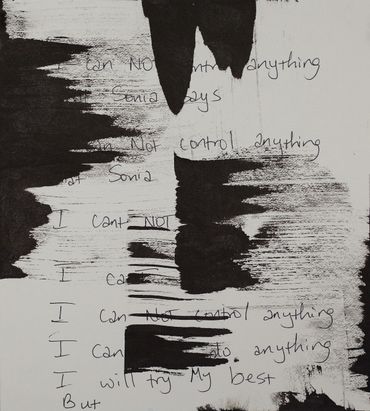 I can NOT control anything
Sonia says
can Not control anything
at Sonia
I cant NOT
I ca
I can Not control anything
I can do anything
I will try My best
But